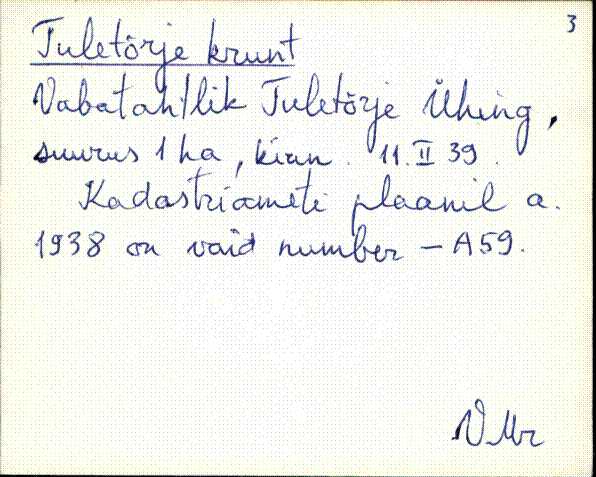 3
Tuletõrje krunt
Vabatahtlik Tuletõrje Ühing,
suurus 1 ha, kinn. 11. II 39.
Kadastriameti plaanil a.
1938 on vaid number – A59.